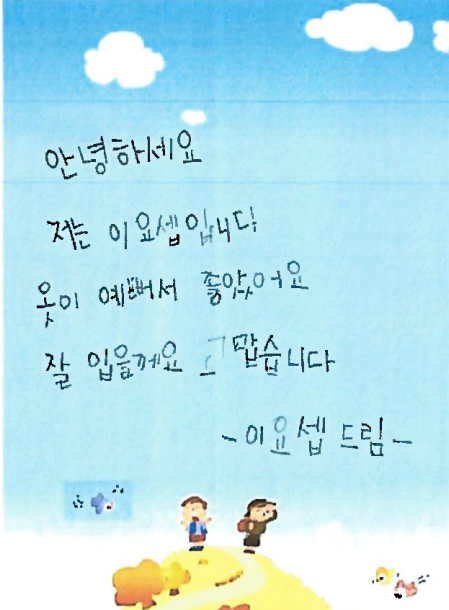 안녕하세요
저는 이요셉입니다!
옷이 예뻐서 좋았어요
잘 입을께요 고맙습니다
-이요셉 드림-